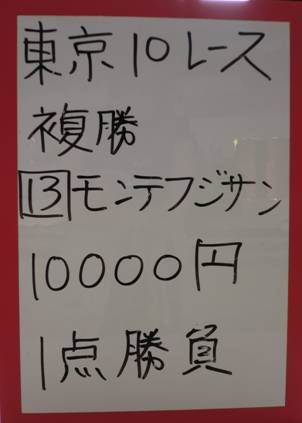 東京10レース
複勝
13モンテフジサン
10000円
1点勝負